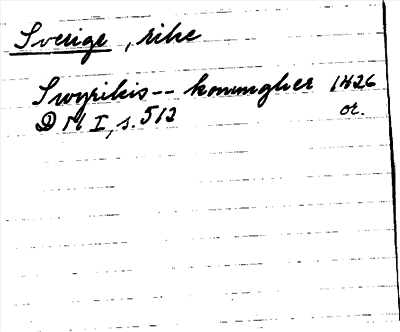 Sverige, rike
Swyrikis -- konungher 1426
DMI, s. 512 or.